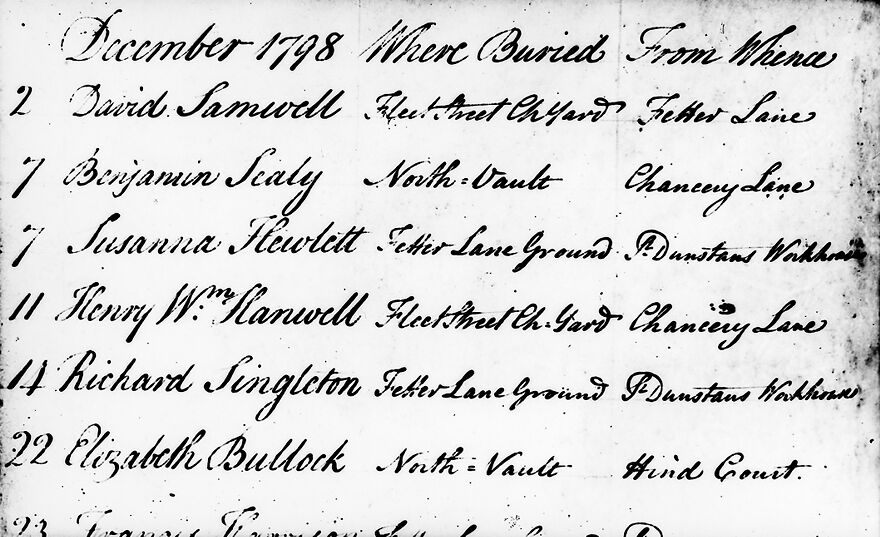 December 1798 Where Buried From Whence
2 David Samwell Fleet Street Ch:Yard Fetter Lane
7 Benjamin Sealy North=Vault Chancery Lane
7 Susanna Hewlett Fetter Lane Ground St Dunstans Workhouse
11 Henry Wm. Hanwell Fleet Street Ch:Yard Chancery Lane
14 Richard Singleton Fetter Lane Ground St Dunstans Workhouse
22 Elizabeth Bullock North=Vault Hind Court.
23 Francis Harrison